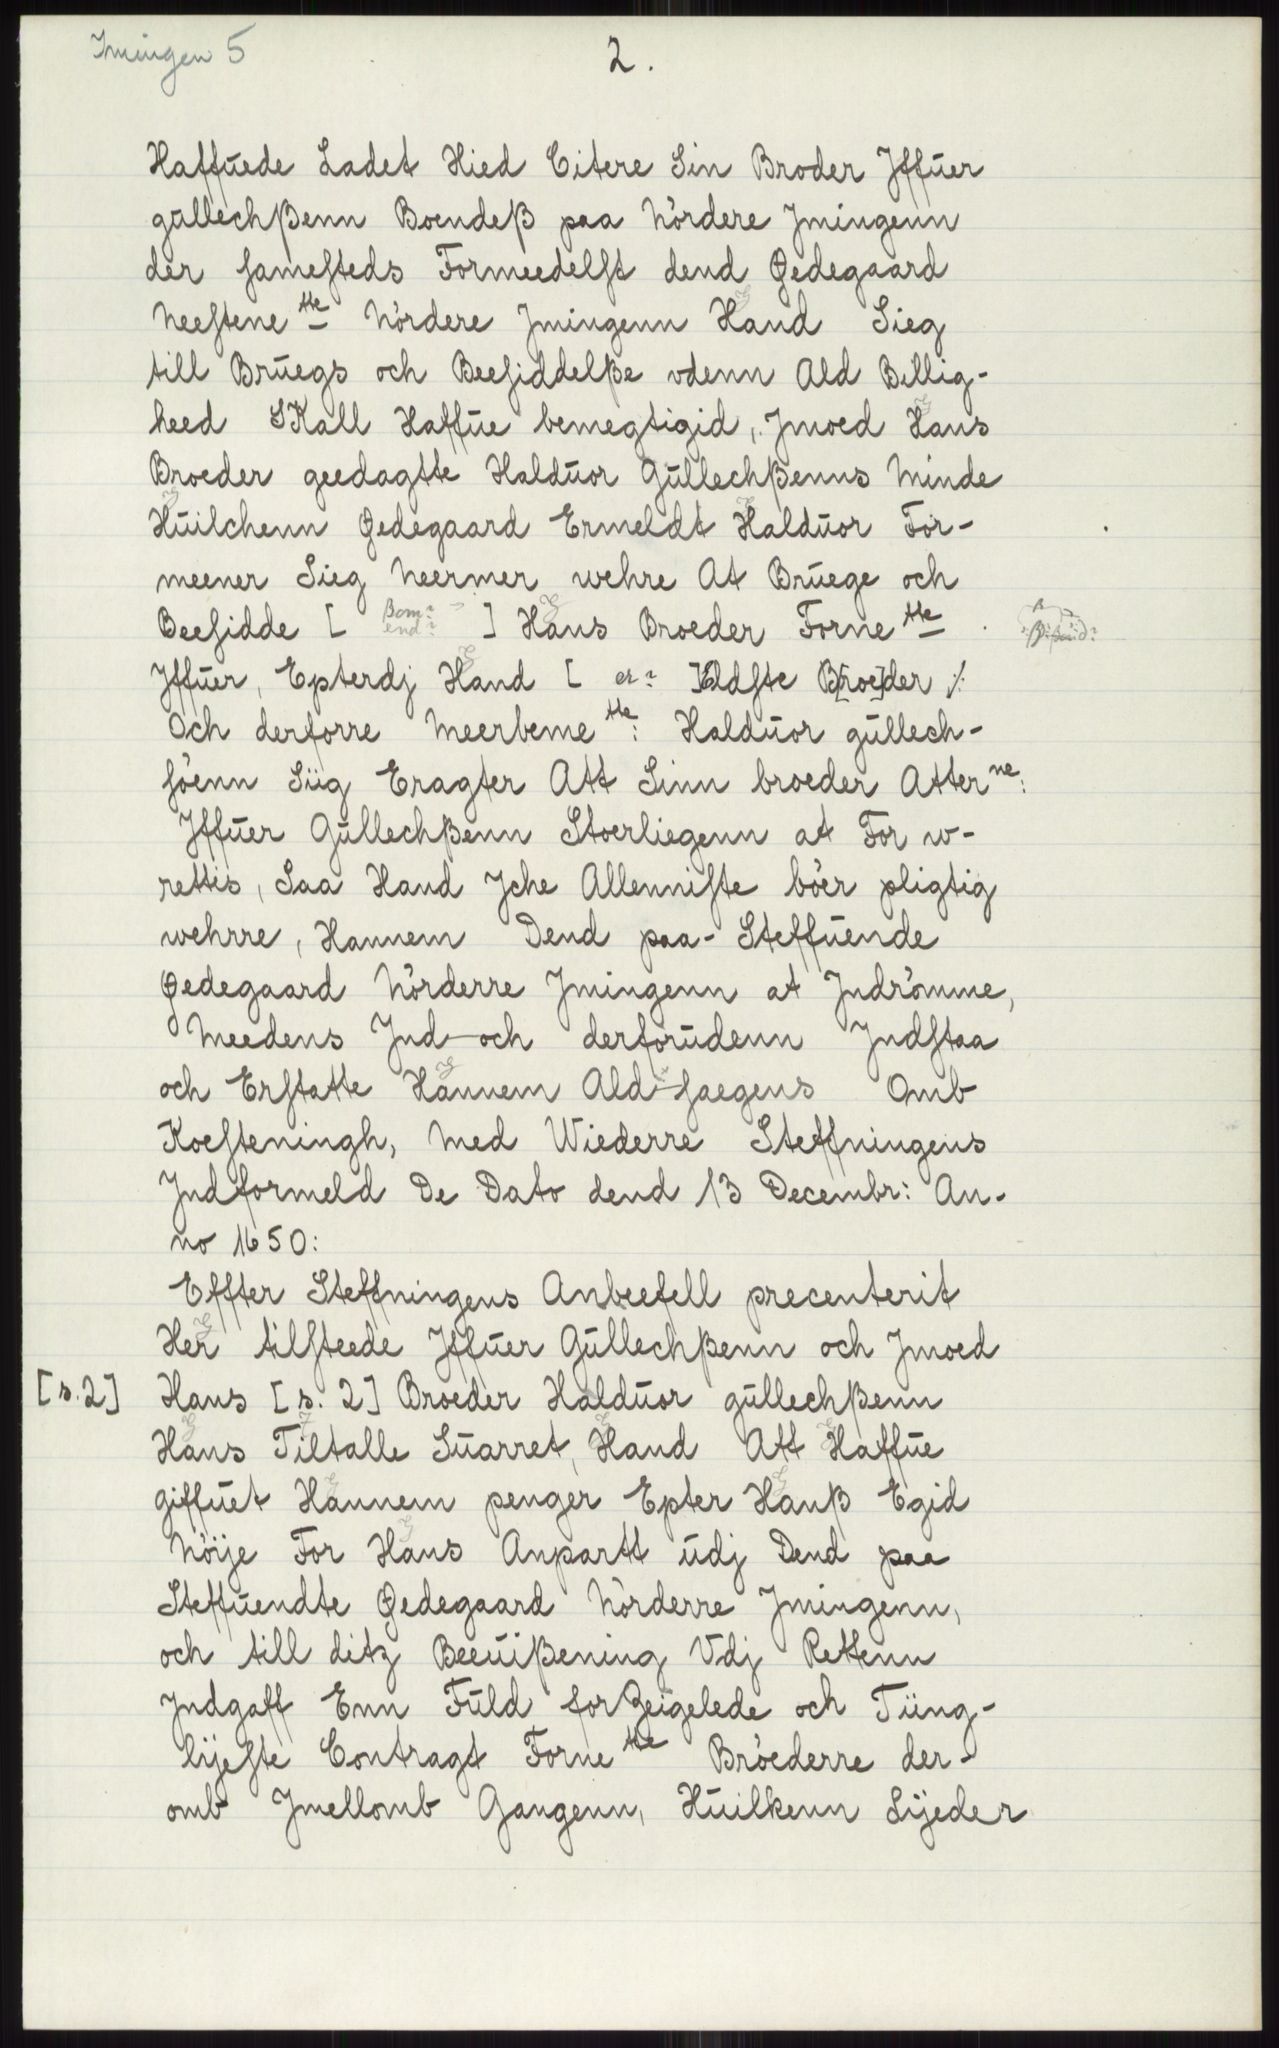 Imingen 5
2.
Haffuede Ladet Hied Citere Sin Broder Jffuer
gullechßenn Boendeß paa Nördere Jmingenn
der samesteds Formeedelst dend Ødegaard
Neestene tte Nördere Jmingenn Hand Sieg
till Bruegs och Beesiddelße vdenn Ald Billig-
heed SKall Haffue bemegtigid, Jmoed Hans
Broeder geedagtte Halduor Gullechßenns Minde
Huilchenn Ødegaard Ermeldt Halduor For-
meener Sieg Neermer wehre At Bruege och
Beesidde [ Bom? end? ] Hans Broeder Forne tte
Jffuer, Epterdj Hand [ er? ] Eldste B[roe]der ⁒
Och derforre Meerbeme tte: Halduor gullech-
söenn Siig Eragter Att Sinn broeder Atter ne:
Jffuer Gullechßenn Stoerliegenn at For w-
rettis, Saa Hand Jche Allenniste böer pligtig
wehrre, Hannem Dend paa- Steffuende
Ødegaard Nörderre Jmingenn at Jndrömme,
Meedens Jnd-och derforudenn Jndstaa
och Erstatte Hannem Ald-saegens Omb
Koesteningh, Med Wiederre Steffningens
Jndformeld De Dato dend 13 Decembr: An-
no 1650:
Effter Steffningens Anbeefell precenterit
Her tilsteede Jffuer Gullechßenn och Jmoed
[s.2] Hans [s. 2] Broeder Halduor gullechßenn
Hans Tiltalle Suarret, Hand Att Haffue
giffuet Hannem penger Epter Hanß Egid
Nöije For Hans Anpartt udj Dend paa
Steffuendte Ødegaard Nörderre Jmingenn,
och till ditz Beeuißening Vdj Rettenn
Jndgaff Enn Fuld forZeigelede och Tüng-
lijeste Contragt Forne tte Bröederre der-
omb Jmellomb Gangenn, Huilkenn Lijeder